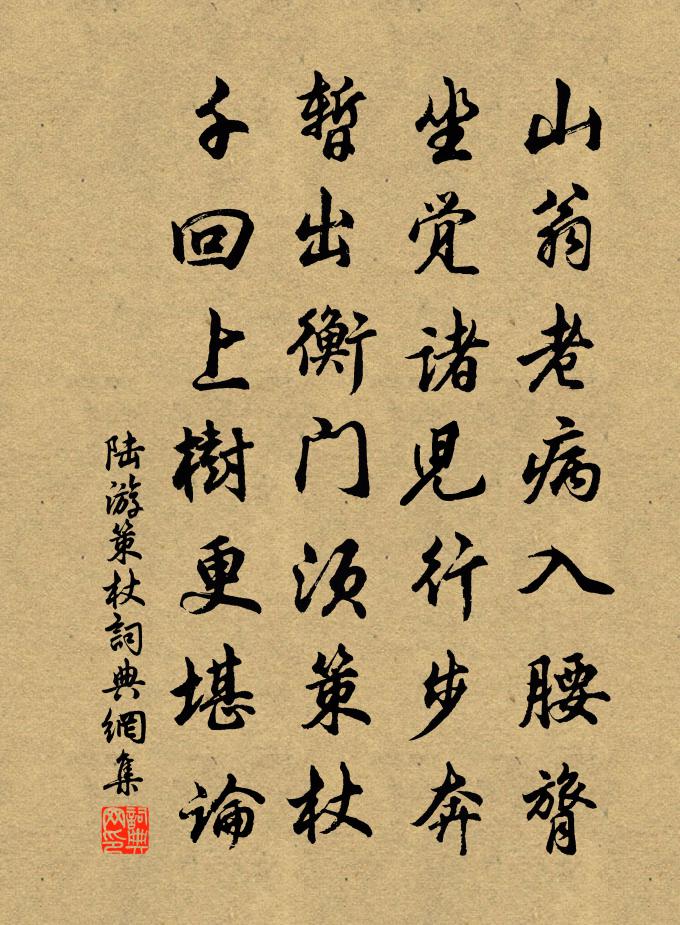 山翁老病入腰膂
坐觉诸兒行步奔
暫出衡门须策杖
千回上樹更堪論
陆游策杖詞典網集
詞典网印